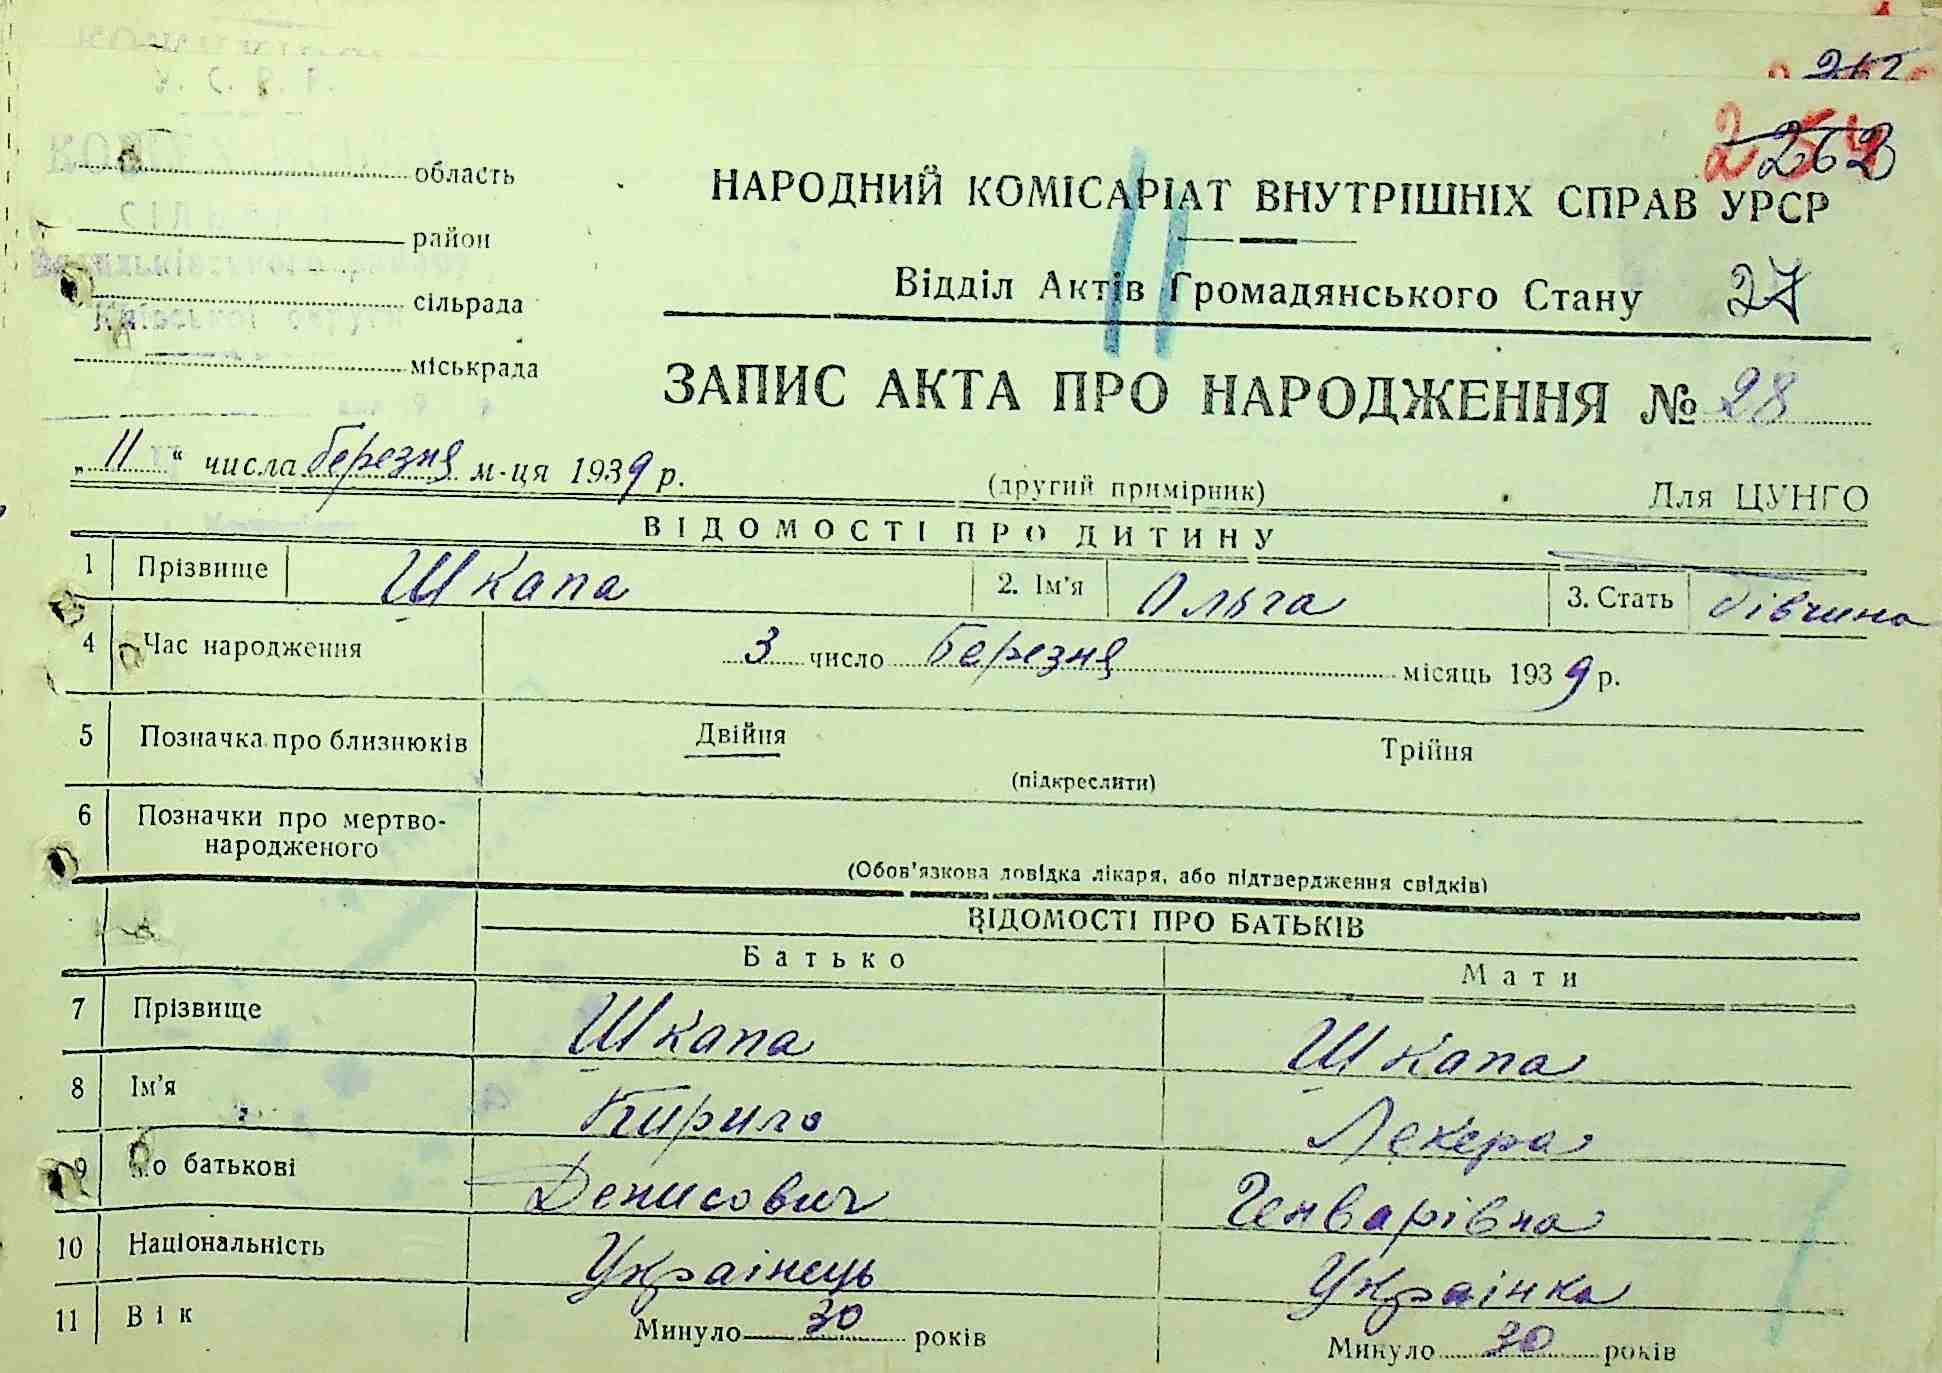 У. С. Р. Р.
262
254
262
область
район
сільрада
міськрада
НАРОДНИЙ КОМІСАРІАТ ВНУТРІШНІХ СПРАВ УРСР
Відділ Актів Громадянського Стану 27
ЗАПИС АКТА ПРО НАРОДЖЕННЯ № 28
„11“ числа березня м-ця 1939 р.
(другий примірник) Для ЦУНГО
ВІДОМОСТІ ПРО ДИТИНУ
1 Прізвище Шкапа 2. Ім'я Ольга 3. Стать дівчина
4 Час народження 3 число Березня місяць 1939 р.
5 Позначка про близнюків Двійня Трійня
(підкреслити)
6 Позначки про мертво-
народженого
(Обов'язкова довідка лікаря, або підтвердження свідків)
ВІДОМОСТІ ПРО БАТЬКІВ
Батько Мати
7 Прізвище Шкапа Шкапа
8 Ім'я Кирило Лекера
9 По батькові Денисович Генварівна
10 Національність Українець Українка
11 Вік Минуло 30 років Минуло 30 років